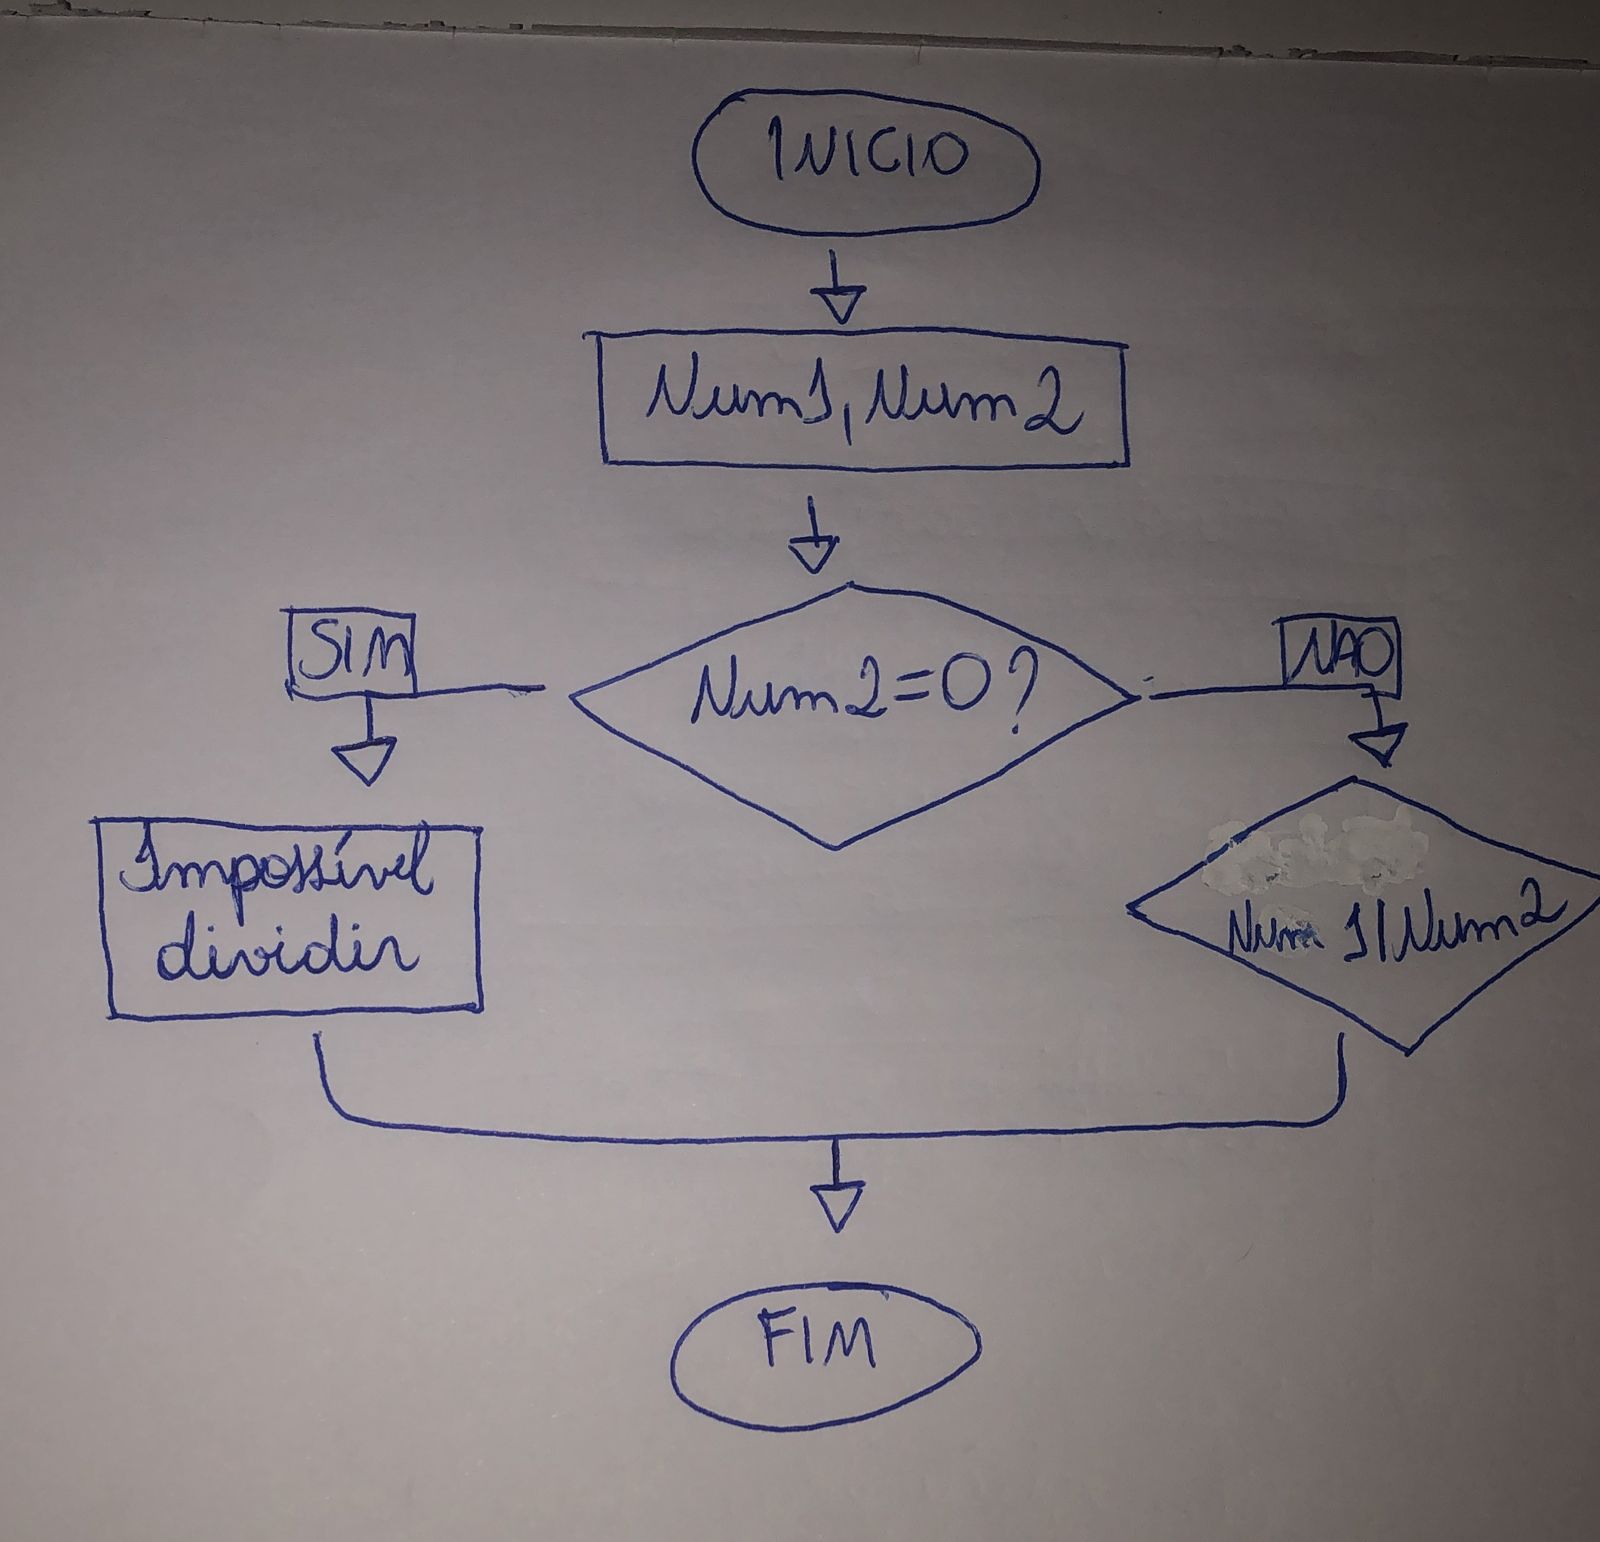 INICIO
Num1, Num2
Num2=0?
SIM
NAO
Impossível
dividir
Num 1/Num2
FIM